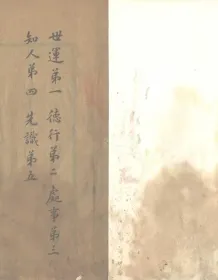 世運第一　德行第二　處事第三
知人第四　先識第五